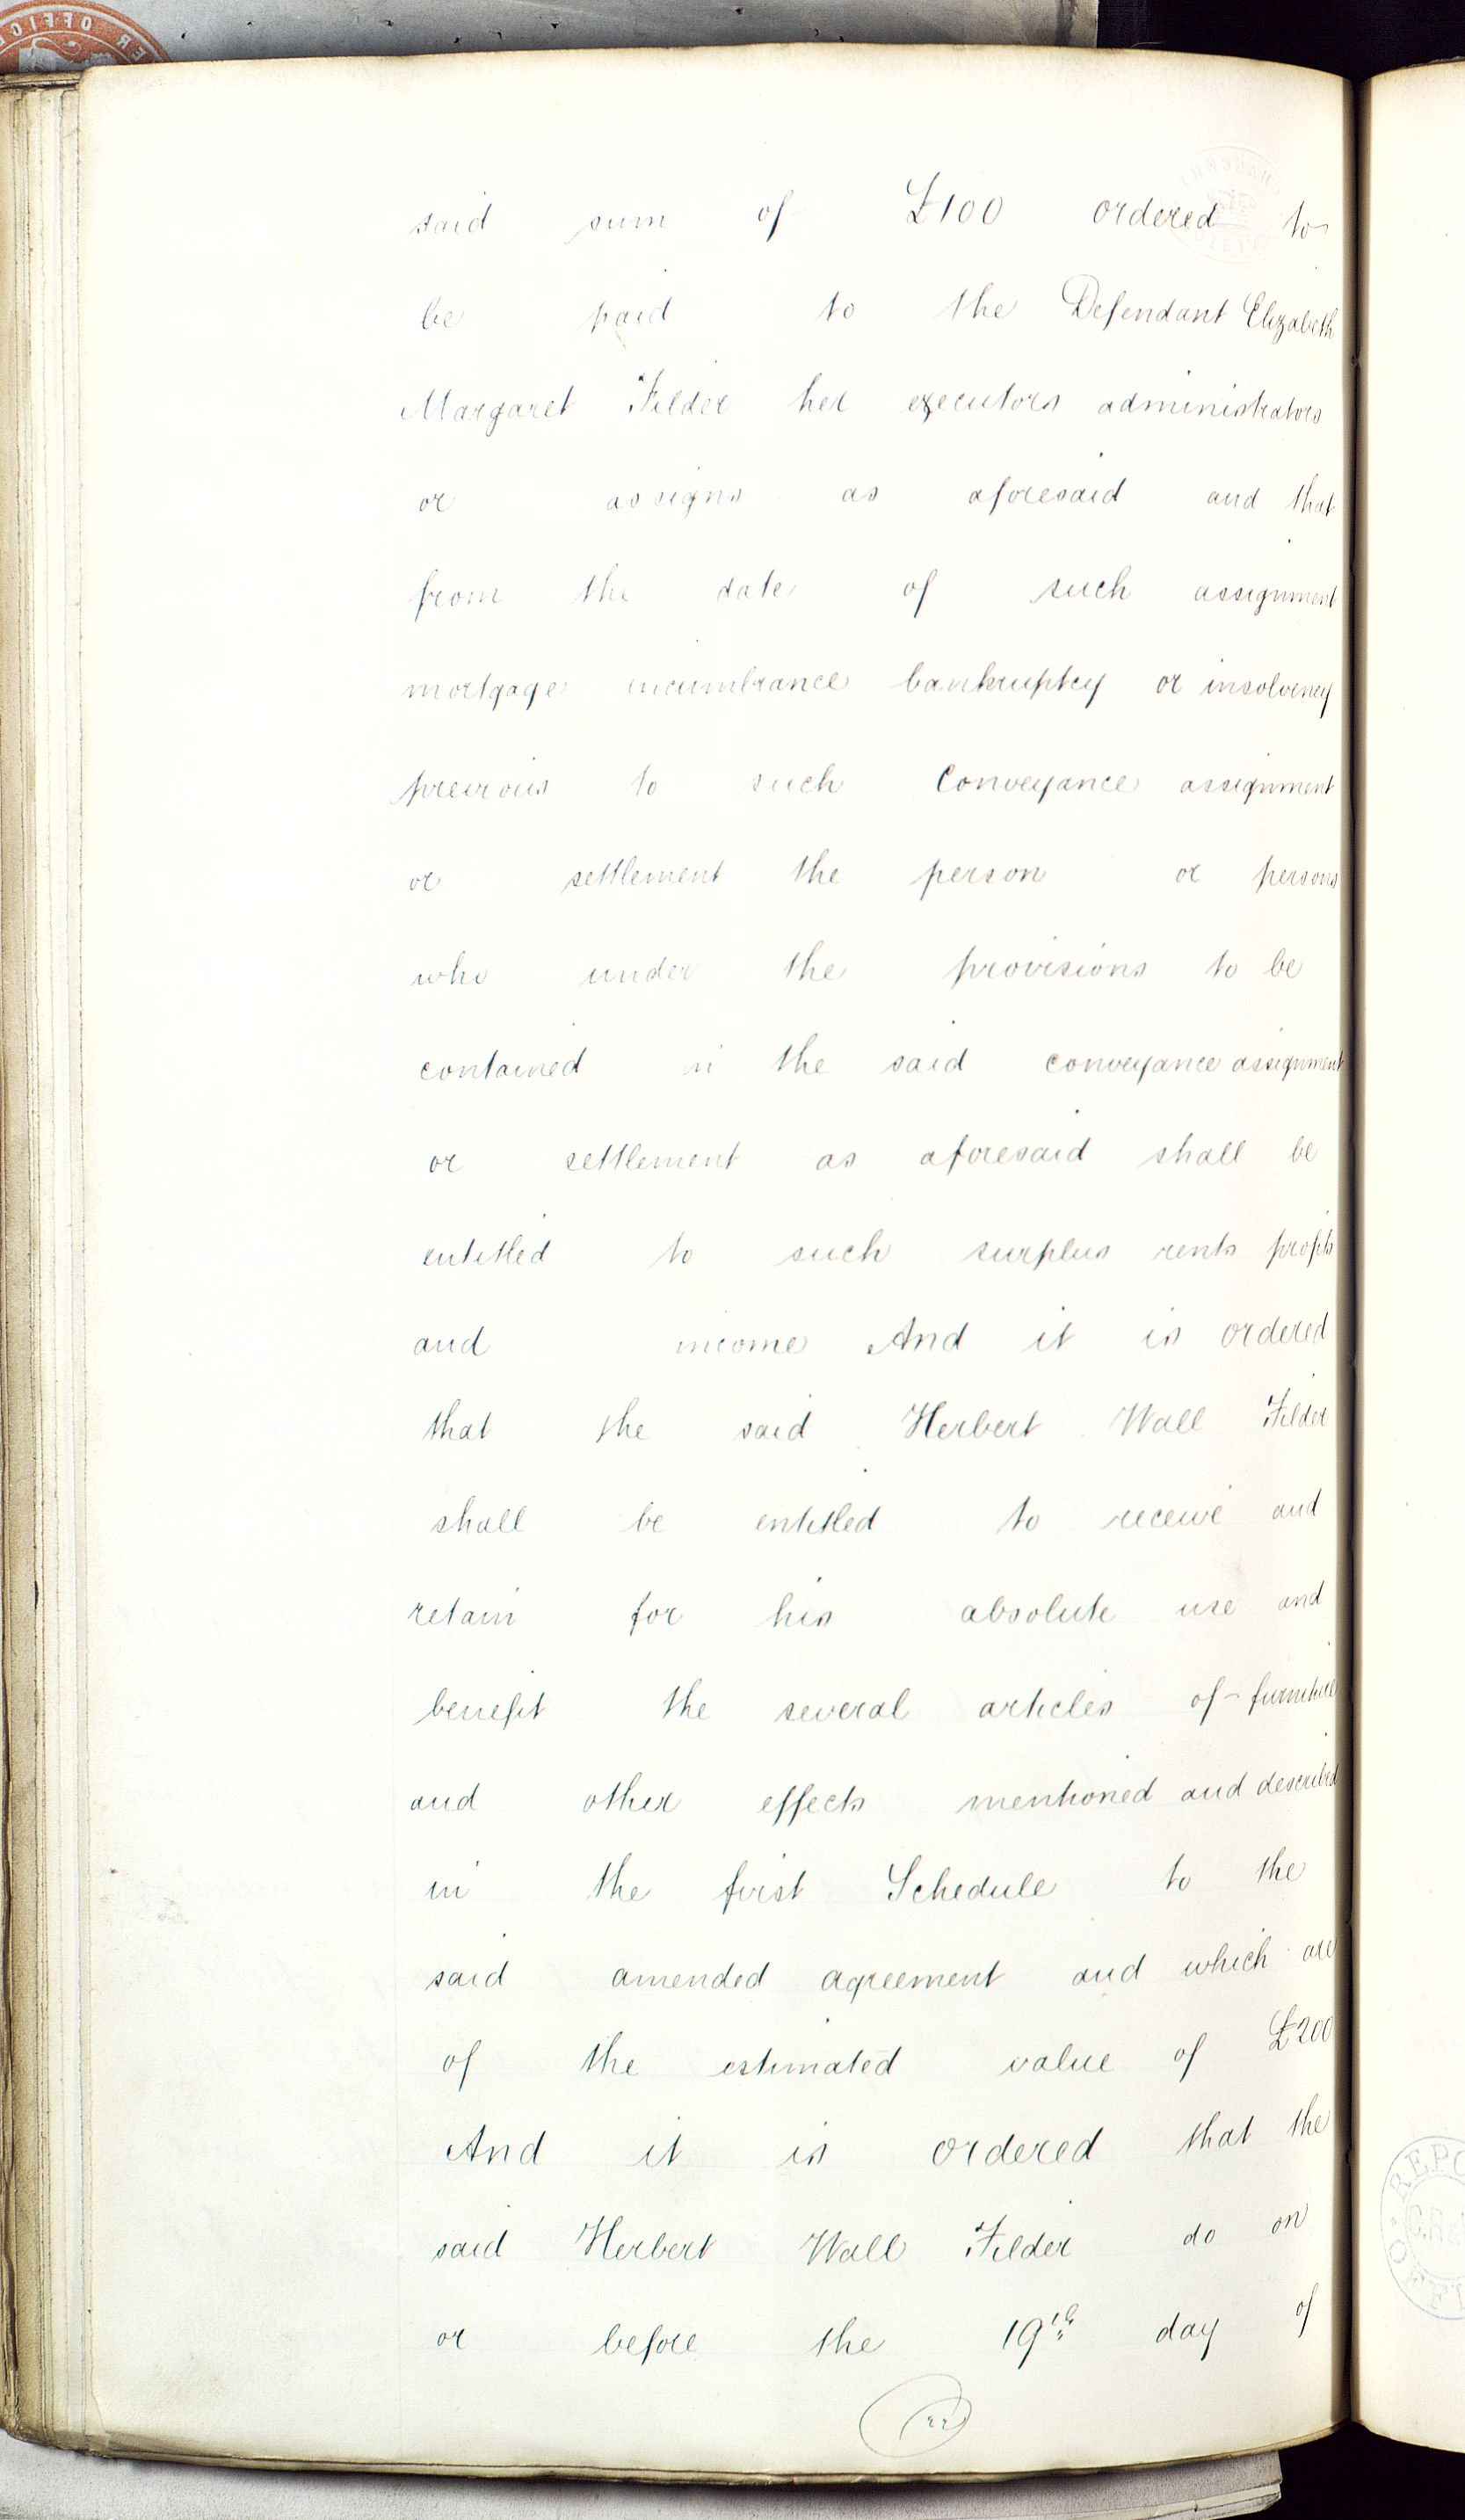 said sum of £100 ordered to
be paid to the Defendant Elizabeth
Margaret Filder her executors administrators
or assigns as aforesaid and that
from the date of such assignment
mortgage incumbrance bankruptcy or insolvency
previous to such Conveyance assignment
or settlement the person or persons
who under the provisions to be
contained in the said conveyance assignment
or settlement as aforesaid shall be
entitled to such surplus rents profits
and income And it is ordered
that the said Herbert Wall Filder
shall be entitled to receive and
retain for his absolute use and
benefit the several articles of furniture
and other effects mentioned and described
in the first Schedule to the
said amended agreement and which are
of the estimated value of £200
And it is ordered that the
said Herbert Wall Filder do on
or before the 19th day of